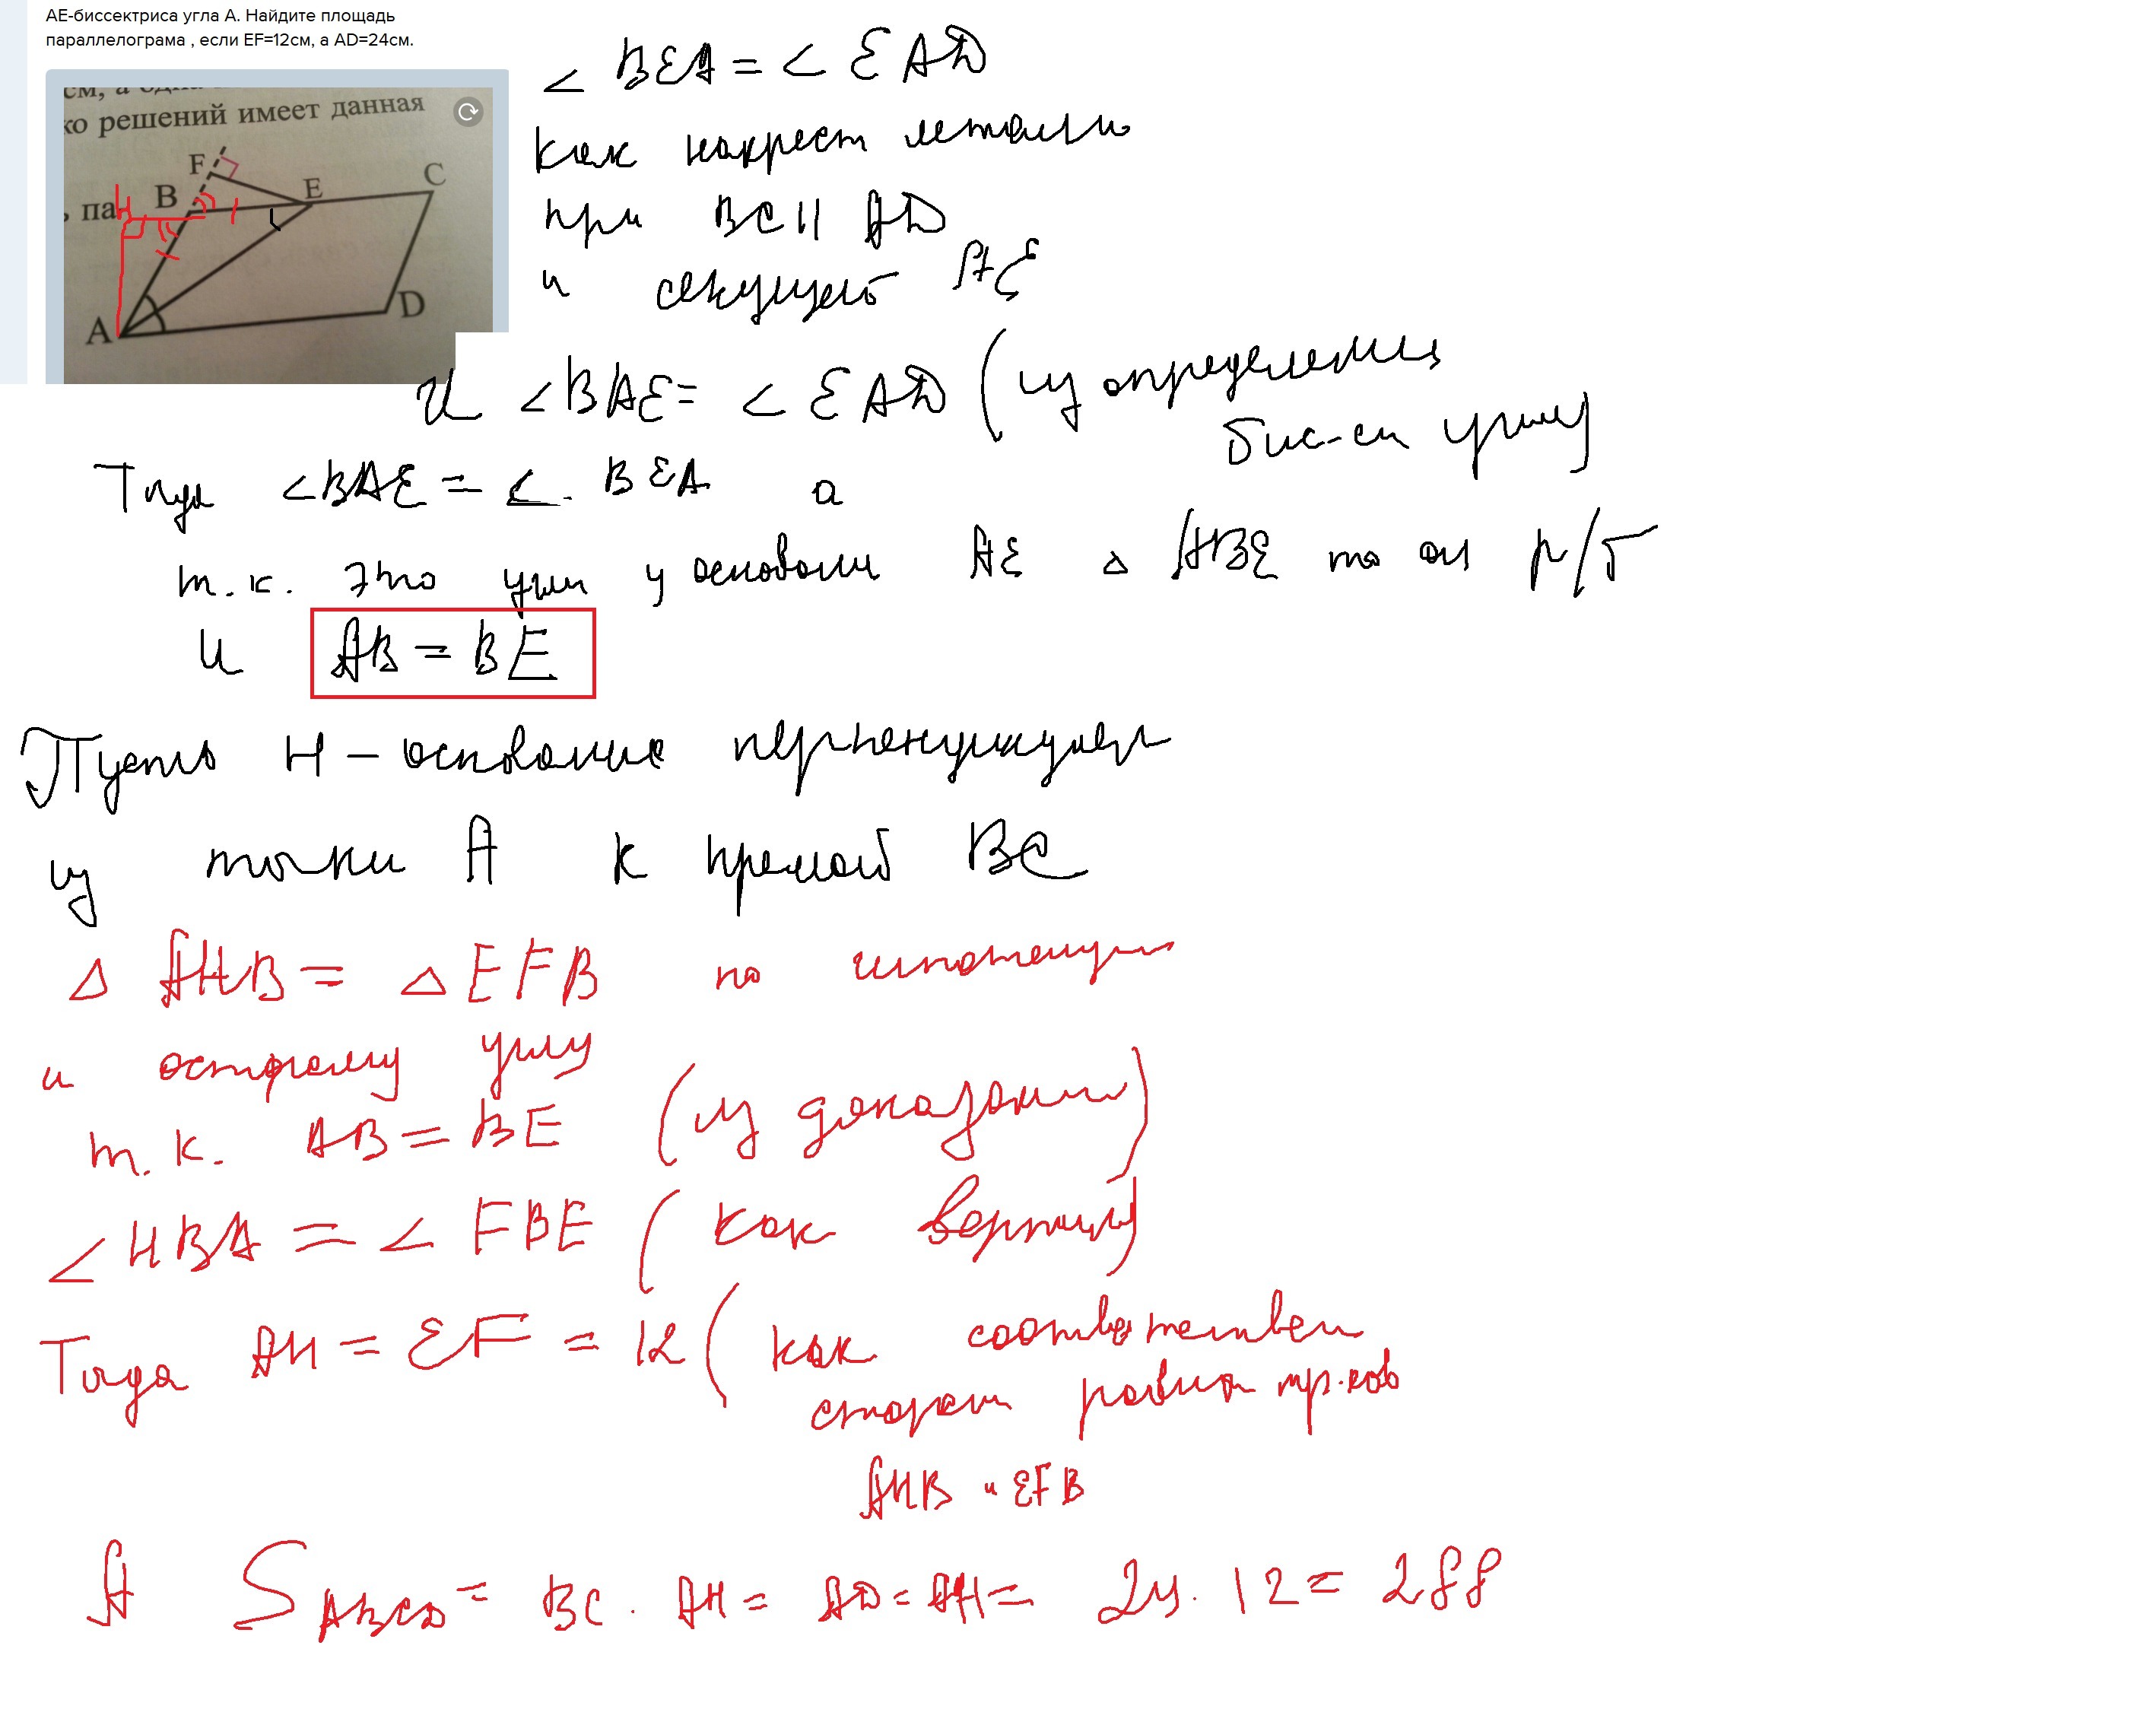 АЕ-биссектриса угла А. Найдите площадь
параллелограма , если EF=12см, а AD=24см.
см, а одна
ко решений имеет данная
F
B
E
C
H
ь па
A
D
∠ BEA = ∠ EAD
как накрест лежащи
при BC || AD
и секущей AE
И ∠BAE = ∠ EAD (из определения
бис-сы угла)
Тогда ∠BAE = ∠ BEA а
т.к. это углы у основани AE △ ABE то он р/б
и AB = BE
Пусть H – основание перпендикуляра
из точки A к прямой BC
△ AHB = △ EFB по гипотенузе
и острому углу
т.к. AB = BE (из доказани)
∠ HBA = ∠ FBE (как вертикал)
Тогда AH = EF = 12 (как соответствен
сторон равных тр.ков
AHB и EFB
А S ABCD = BC · AH = AD = AH = 24 · 12 = 288